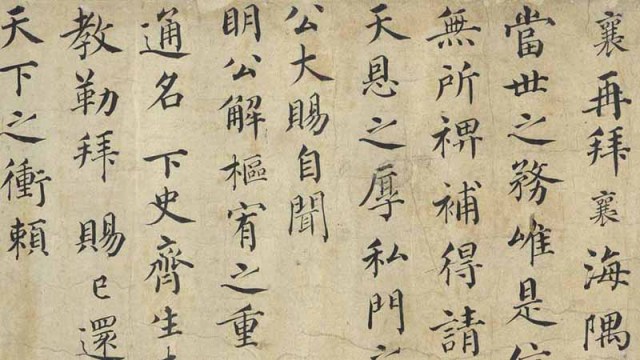 襄再拜襄海隅
當世之務唯是
無所裨補得請
天恩之厚私門之
公大賜自聞
明公解樞宥之重
通名下史齊生
教勒拜賜已還
天下之衝賴